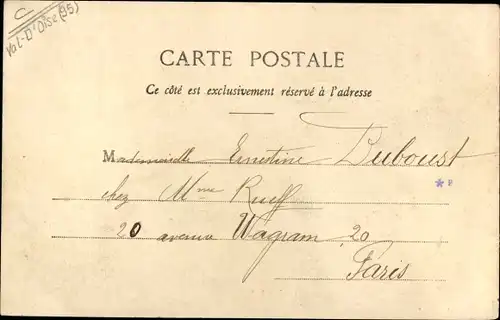 C
Val-D'Oise (95)
CARTE POSTALE
Ce côté est exclusivement réservé à l'adresse
Mademoiselle Ernestine Duboust
chez Mme Rueff
20 avenue Wagram 20
Paris